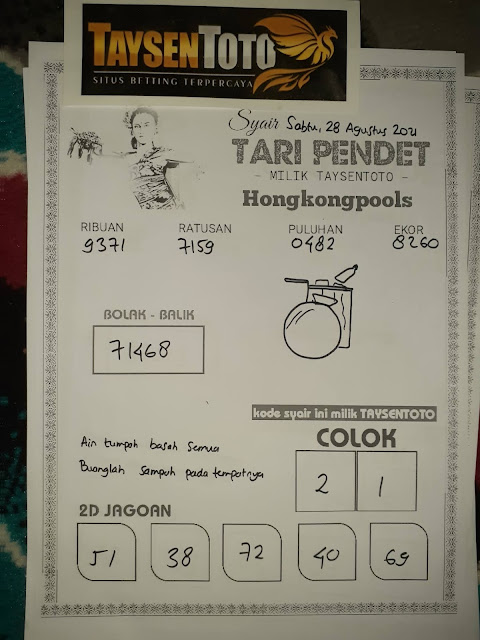 TAYSENTOTO
SITUS BETTING TERPERCAYA
Syair Sabtu, 28 Agustus 2021
TARI PENDET
- MILIK TAYSENTOTO -
Hongkongpools
RIBUAN RATUSAN PULUHAN EKOR
9371 7159 0482 8260
BOLAK - BALIK
71468
kode syair ini milik TAYSENTOTO
Air tumpah basah semua
Buanglah sampah pada tempatnya
COLOK
2 1
2D JAGOAN
51 38 72 40 69